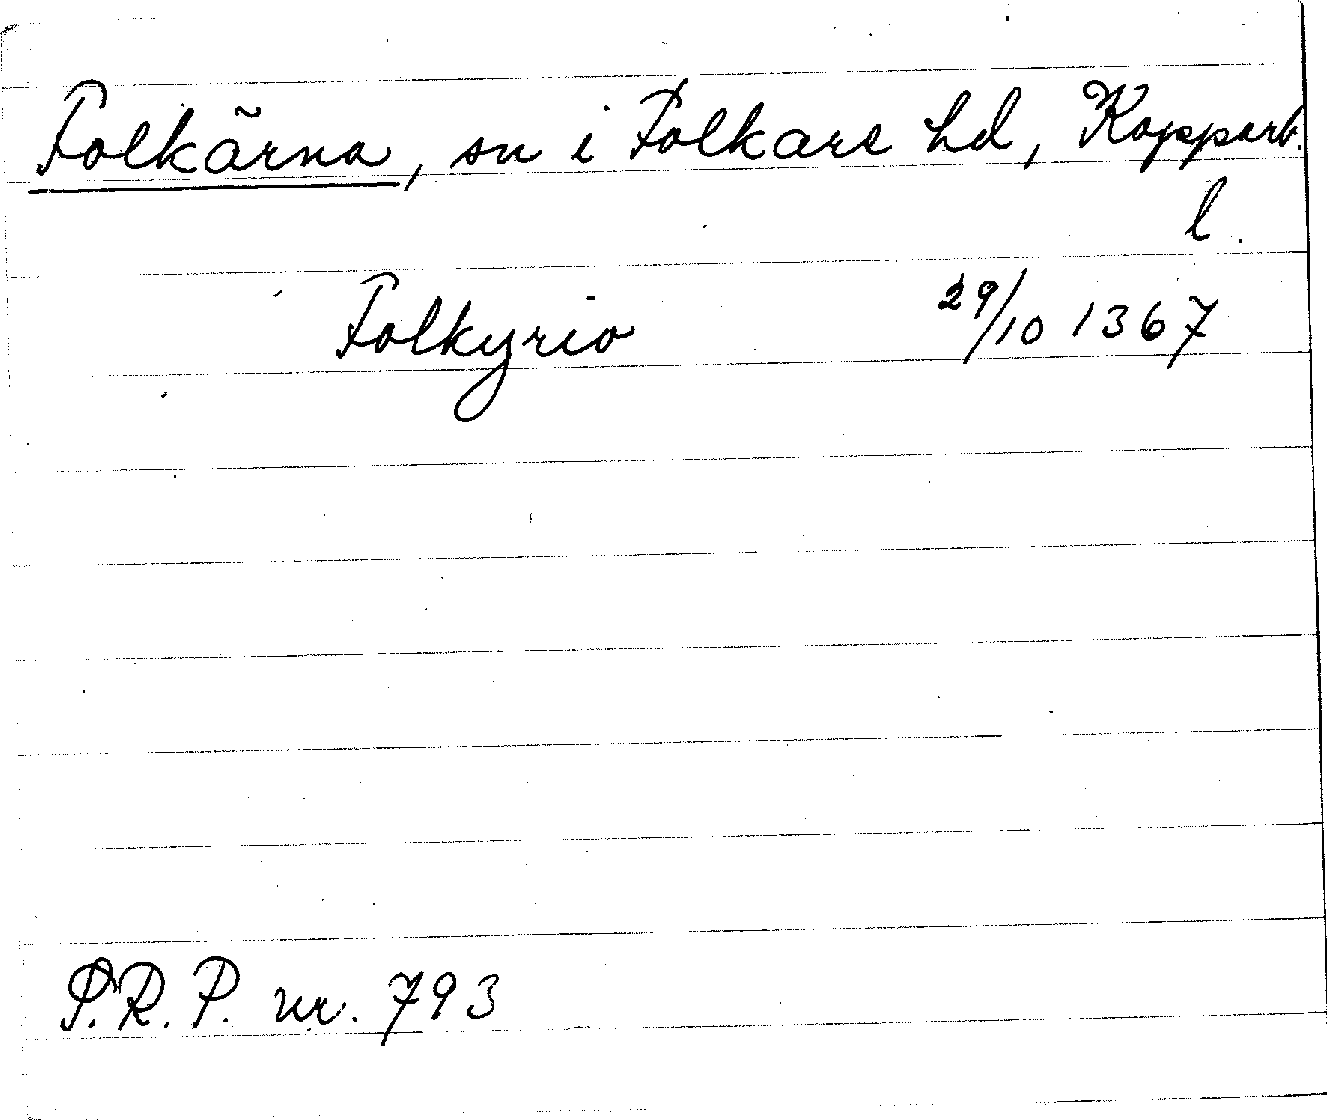 Folkärna, sn i Folkare hd, Kopparb.
l.
Folkyrio 29/10 1367
P.R.P. nr. 793